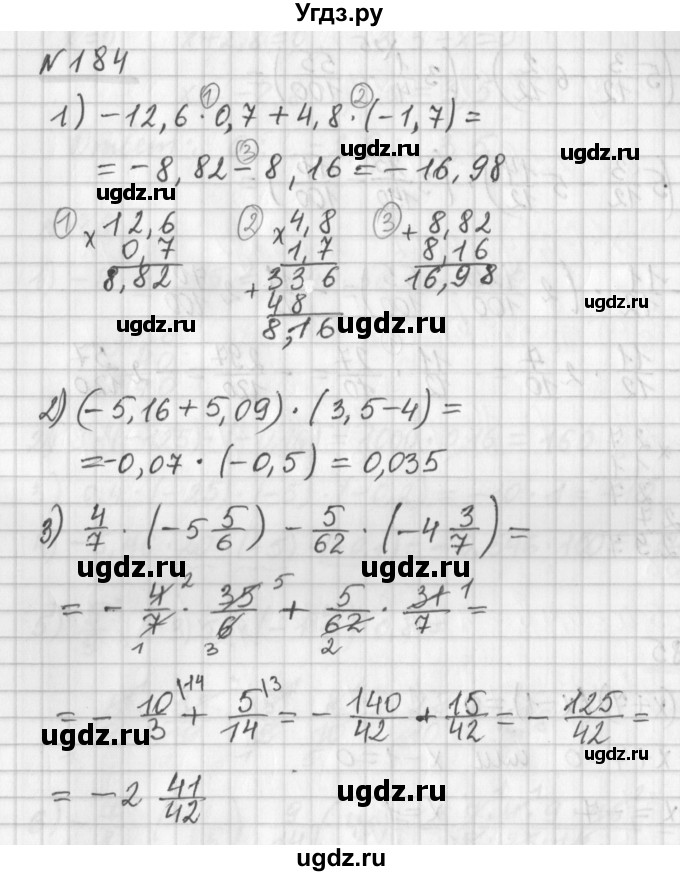 Угдз.ру
№184
1) −12,6 ·① 0,7 + 4,8 ·② (−1,7) =
= −8,82 −③ 8,16 = −16,98
ugdz.ru ugdz.ru ugdz.ru
① × 12,6 ② × 4,8 ③ + 8,82
0,7 1,7 8,16
8,82 336 16,98
+ 48
8,16
ugdz.ru ugdz.ru ugdz.ru
2) (−5,16 + 5,09) · (3,5 − 4) =
= −0,07 · (−0,5) = 0,035
3) 4/7 · (−5 5/6) − 5/62 · (−4 3/7) =
ugdz.ru ugdz.ru ugdz.ru
= − 4/7 · 35/6 + 5/62 · 31/7 =
2 5 1
1 3 2
= − 10/3 \14 + 5/14 \3 = − 140/42 + 15/42 = − 125/42 =
ugdz.ru ugdz.ru ugdz.ru
= −2 41/42
ugdz.ru
ugdz.ru